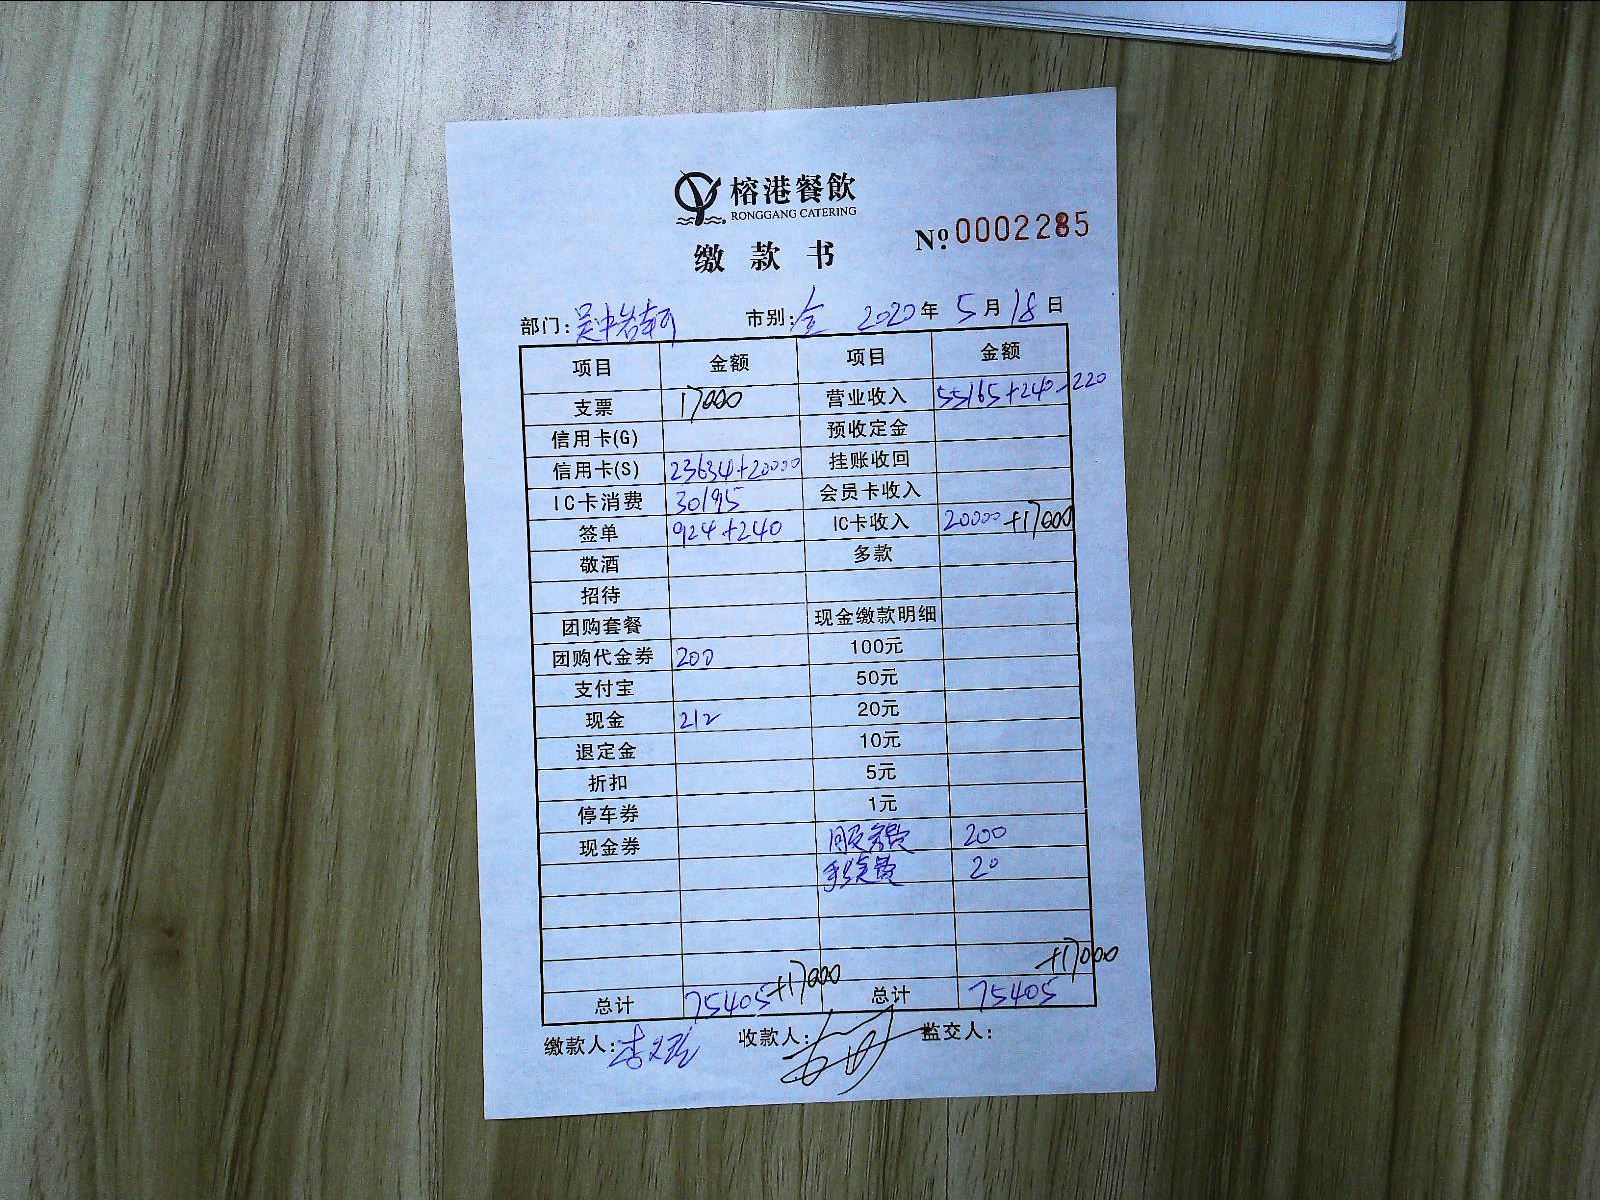 榕港餐飲
RONGGANG CATERING
缴款书 №0002285
部门: 市别: 2020年5月18日
项目 金额 项目 金额
支票 17000 营业收入 55165+240-220
信用卡(G) 预收定金
信用卡(S) 23634+20000 挂账收回
IC卡消费 30195 会员卡收入
签单 924+240 IC卡收入 20000+17000
敬酒 多款
招待
团购套餐 现金缴款明细
团购代金券 200 100元
支付宝 50元
现金 212 20元
退定金 10元
折扣 5元
停车券 1元
现金券 服务费 200
手续费 20
总计 75405+17000 总计 75405+17000
缴款人: 收款人: 监交人: